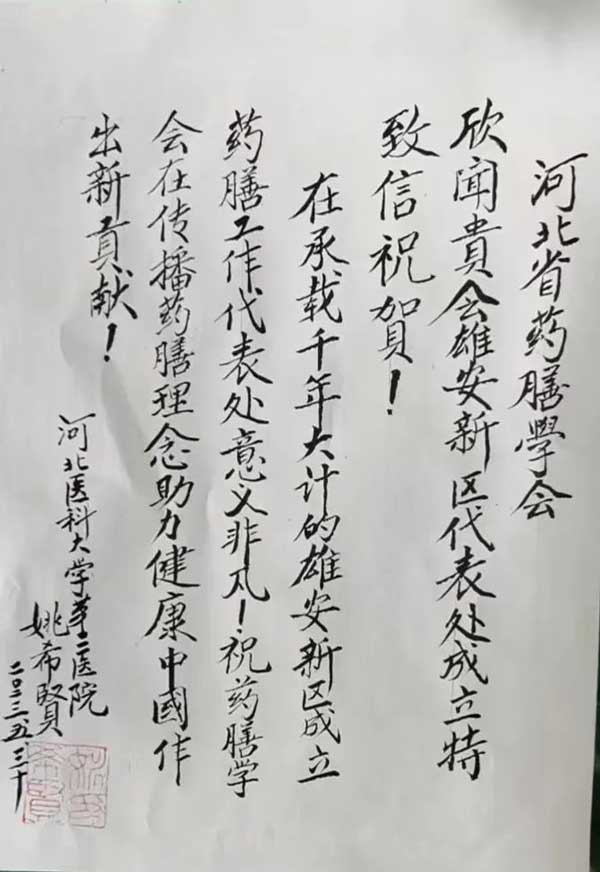 河北省药膳學会
欣闻貴会雄安新区代表处成立特
致信祝賀！
在承载千年大计的雄安新区成立
药膳工作代表处意义非凡！祝药膳学
会在传播药膳理念助力健康中國作
出新貢献！
河北医科大学第二医院
姚希賢
二〇二三.五.三十